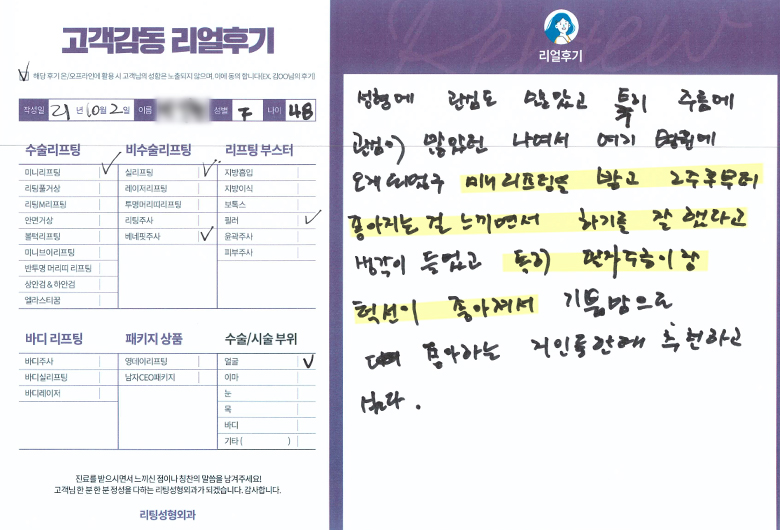 고객감동 리얼후기
해당 후기 온/오프라인에 활용 시 고객님의 성함은 노출되지 않으며, 이에 동의 합니다(EX. 김OO님의 후기)
작성일 21년 10월 2일 이름 성별 F 나이 48
수술리프팅 비수술리프팅 리프팅 부스터
미니리프팅 실리프팅 지방흡입
리팅풀거상 레이저리프팅 지방이식
리팅M리프팅 투명머리띠리프팅 보톡스
안면거상 리팅주사 필러
볼턱리프팅 베네핏주사 윤곽주사
미니브이리프팅 피부주사
반투명 머리띠 리프팅
상안검 & 하안검
엘라스티꿈
바디 리프팅 패키지 상품 수술/시술 부위
바디주사 영데이리프팅 얼굴
바디실리프팅 남자CEO패키지 이마
바디레이저 눈
목
바디
기타 ( )
진료를 받으시면서 느끼신 점이나 칭찬의 말씀을 남겨주세요!
고객님 한 분 한 분 정성을 다하는 리팅성형외과가 되겠습니다. 감사합니다.
리팅성형외과
Review
리얼후기
성형에 관심도 많았고 특히 주름에
관심이 많았던 나여서 여기 병원에
오게 되었구 미니리프팅을 받고 2주후부터
좋아지는 걸 느끼면서 하기를 잘 했다라고
생각이 들었고 특히 팔자주름이랑
턱선이 좋아져서 기쁨맘으로
좋아하는 지인들한테 추천하고
싶다.